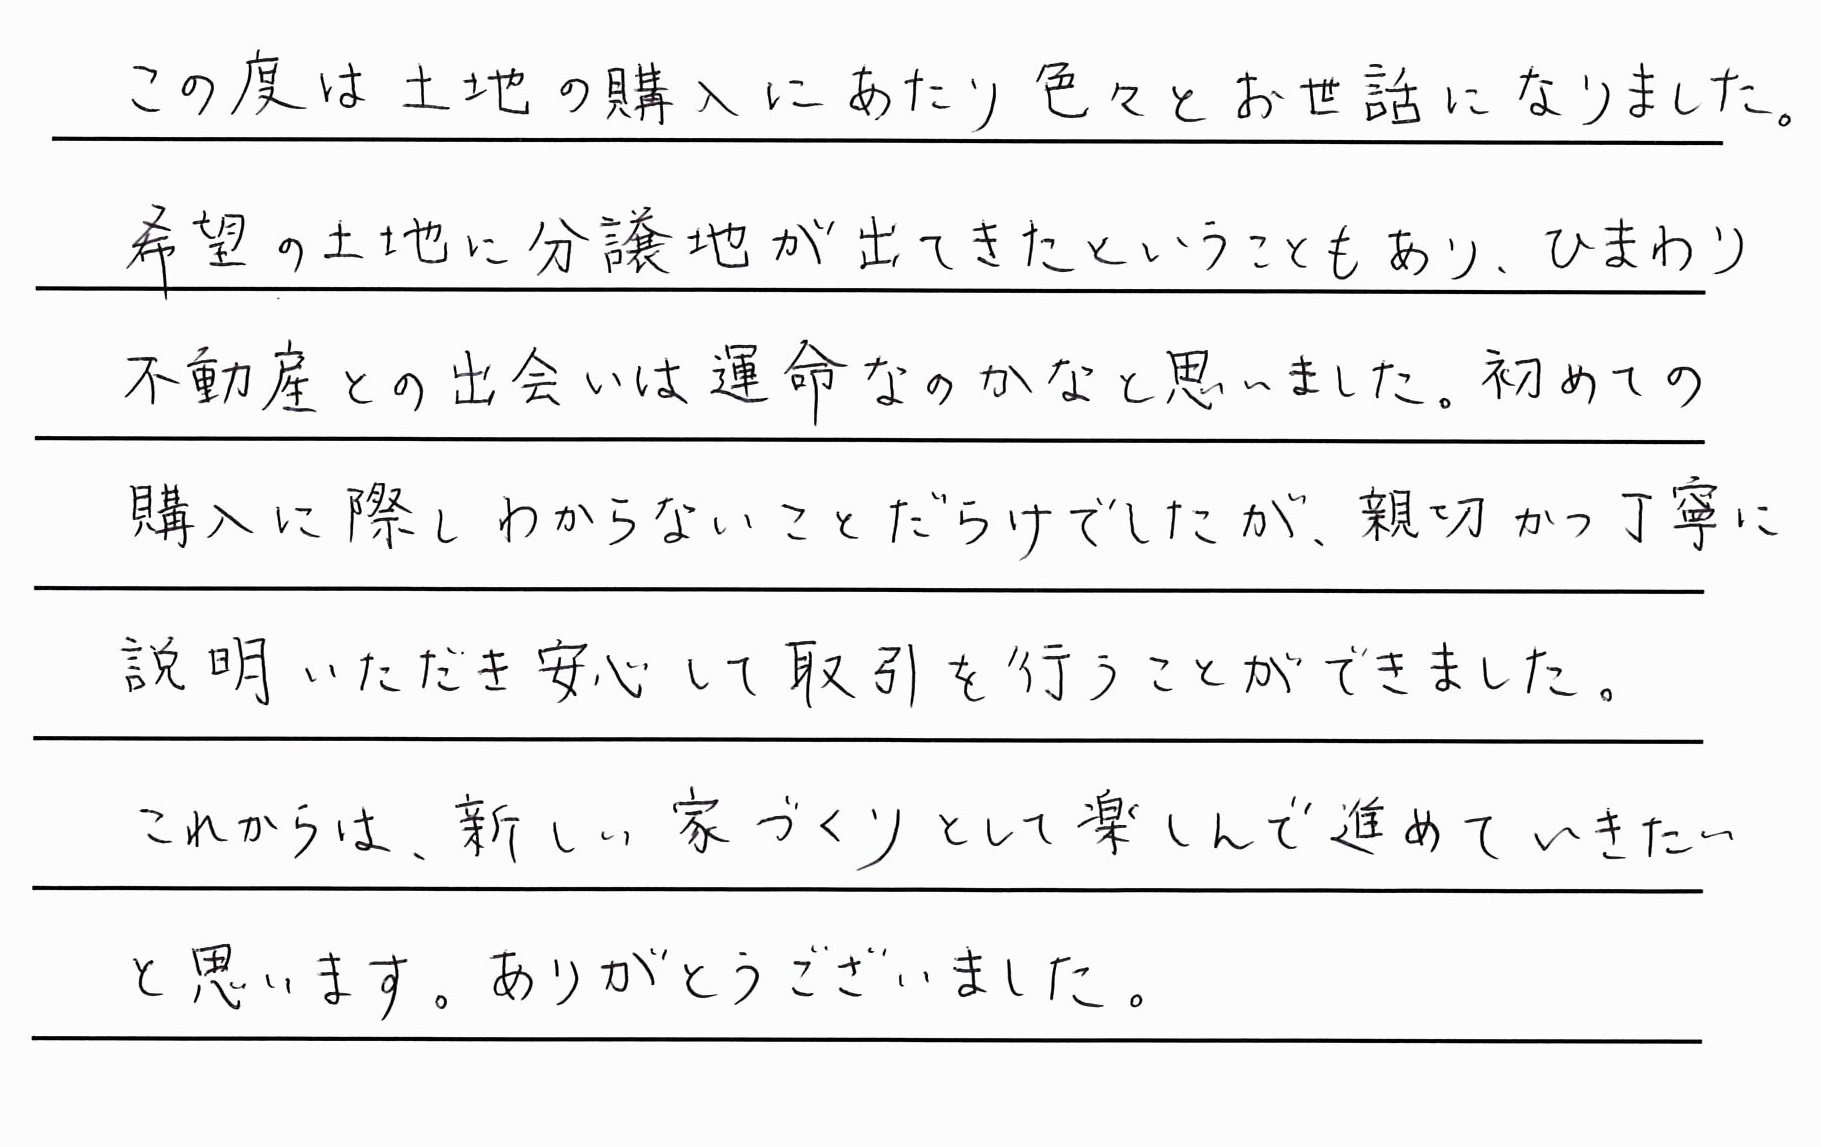 この度は土地の購入にあたり色々とお世話になりました。
希望の土地に分譲地が出てきたということもあり、ひまわり
不動産との出会いは運命なのかなと思いました。初めての
購入に際しわからないことだらけでしたが、親切かつ丁寧に
説明いただき安心して取引を行うことができました。
これからは、新しい家づくりとして楽しんで進めていきたい
と思います。ありがとうございました。